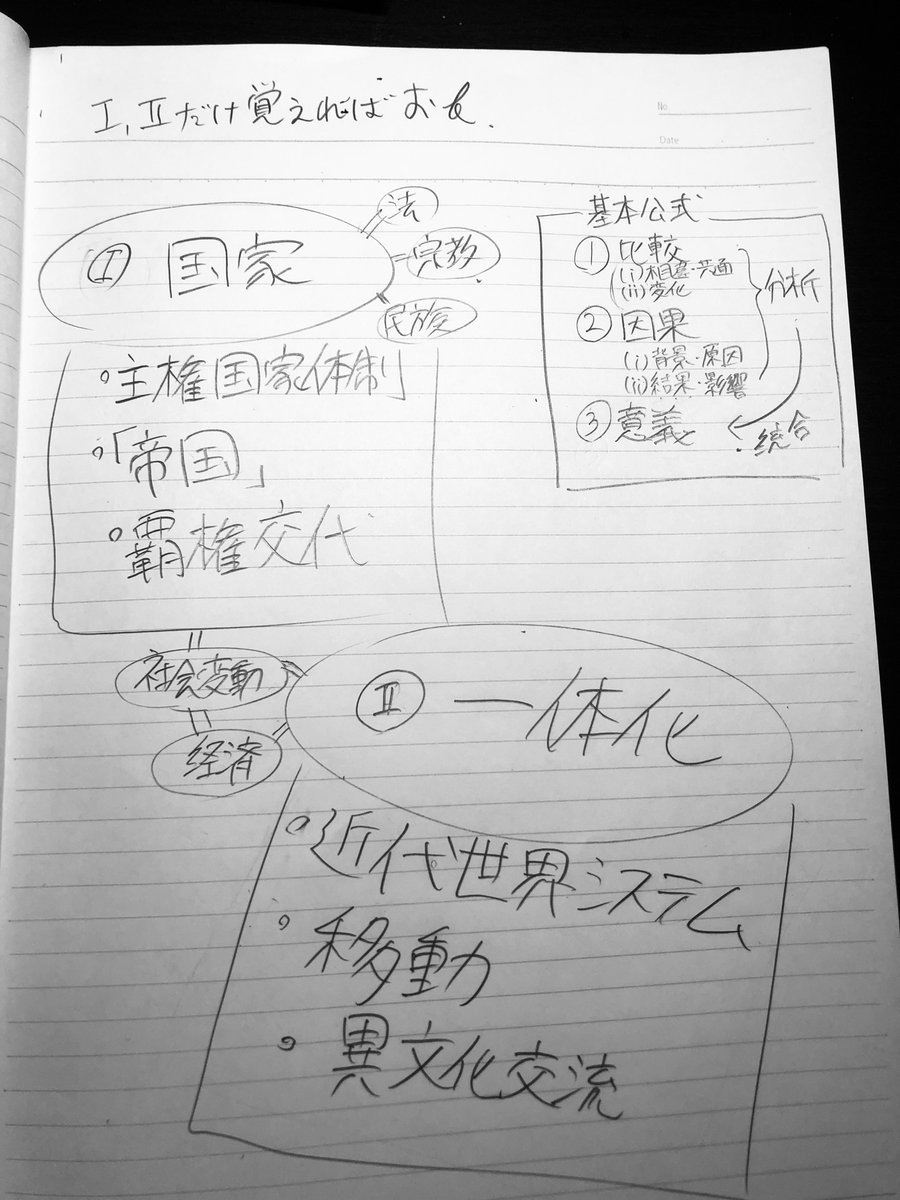 Ⅰ,Ⅱだけ覚えればおk.
No.
Date
Ⅰ 国家
法
宗教
民族
・主権国家体制
・「帝国」
・覇権交代
基本公式
① 比較
(ⅰ)相違・共通
(ⅱ)変化
② 因果
(ⅰ)背景・原因
(ⅱ)結果・影響
分析
③ 意義
統合
社会変動
経済
Ⅱ 一体化
・近代世界システム
・移動
・異文化交流